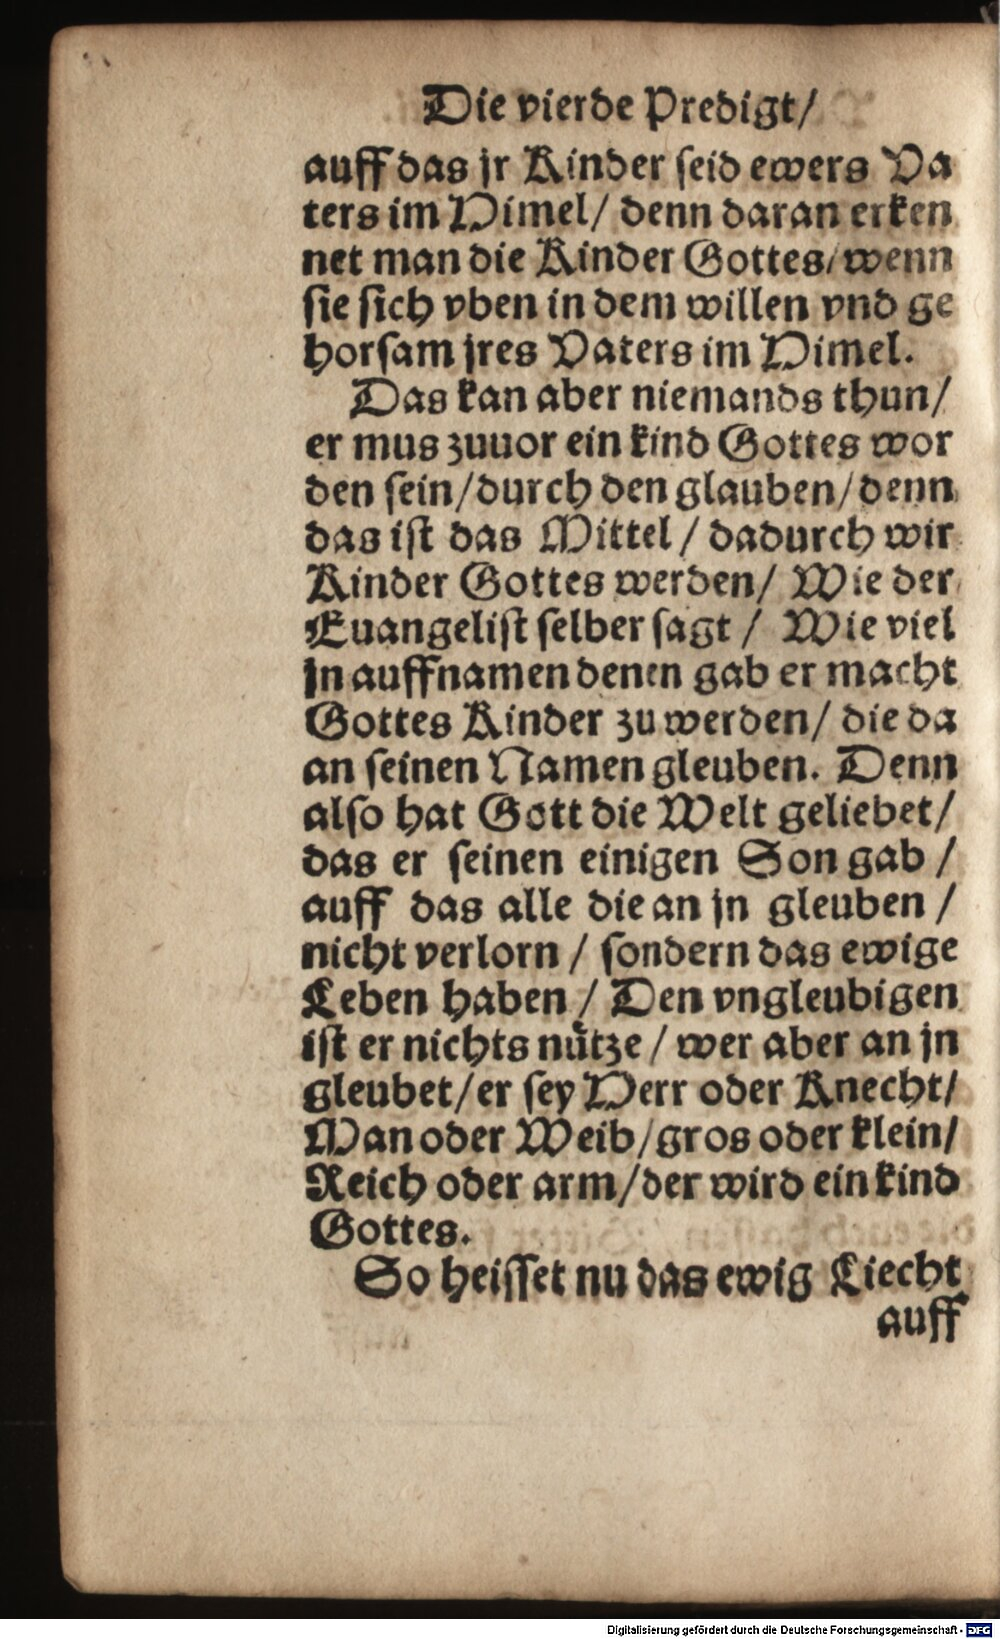 Die vierde Predigt/
auff das jr Kinder seid ewers Va
ters im Himel/ denn daran erken
net man die Kinder Gottes/ wenn
sie sich vben in dem willen vnd ge
horsam jres Vaters im Himel.
Das kan aber niemands thun/
er mus zuuor ein kind Gottes wor
den sein/durch den glauben/denn
das ist das Mittel / dadurch wir
Kinder Gottes werden/ Wie der
Euangelist selber sagt / Wie viel
jn auffnamen denen gab er macht
Gottes Kinder zu werden/ die da
an seinen Namen gleuben. Denn
also hat Gott die Welt geliebet/
das er seinen einigen Son gab /
auff das alle die an jn gleuben /
nicht verlorn / sondern das ewige
Leben haben / Den vngleubigen
ist er nichts nütze / wer aber an jn
gleubet/er sey Herr oder Knecht/
Man oder Weib/gros oder klein/
Reich oder arm/der wird ein kind
Gottes.
So heisset nu das ewig Liecht
auff
Digitalisierung gefördert durch die Deutsche Forschungsgemeinschaft - DFG